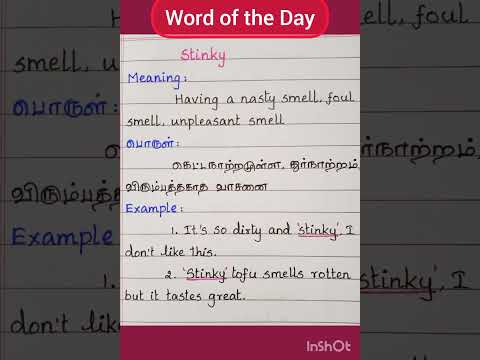 Word of the Day
Stinky
Meaning:
Having a nasty smell, foul
smell, unpleasant smell
பொருள்:
கெட்டநாற்றமுள்ள, துர்நாற்றம்,
விரும்பத்தகாத வாசனை
Example:
1. It's so dirty and 'stinky', I
don't like this.
2. 'Stinky' tofu smells rotten
but it tastes great.
InShOt